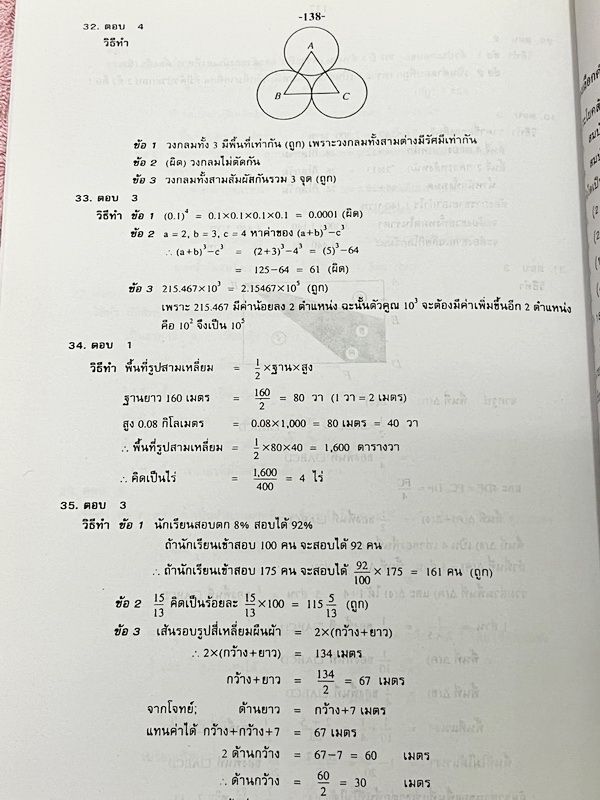 -138-
32. ตอบ 4
วิธีทำ
A
B
C
ข้อ 1 วงกลมทั้ง 3 มีพื้นที่เท่ากัน (ถูก) เพราะวงกลมทั้งสามต่างมีรัศมีเท่ากัน
ข้อ 2 (ผิด) วงกลมไม่ตัดกัน
ข้อ 3 วงกลมทั้งสามสัมผัสกันรวม 3 จุด (ถูก)
33. ตอบ 3
วิธีทำ ข้อ 1 (0.1)⁴ = 0.1×0.1×0.1×0.1 = 0.0001 (ผิด)
ข้อ 2 a = 2, b = 3, c = 4 หาค่าของ (a+b)³−c³
∴ (a+b)³−c³ = (2+3)³−4³ = (5)³−64
= 125−64 = 61 (ผิด)
ข้อ 3 215.467×10³ = 2.15467×10⁵ (ถูก)
เพราะ 215.467 มีค่าน้อยลง 2 ตำแหน่ง ฉะนั้นตัวคูณ 10³ จะต้องมีค่าเพิ่มขึ้นอีก 2 ตำแหน่ง
คือ 10² จึงเป็น 10⁵
34. ตอบ 1
วิธีทำ พื้นที่รูปสามเหลี่ยม = 1/2 ×ฐาน×สูง
ฐานยาว 160 เมตร = 160/2 = 80 วา (1 วา = 2 เมตร)
สูง 0.08 กิโลเมตร = 0.08×1,000 = 80 เมตร = 40 วา
∴ พื้นที่รูปสามเหลี่ยม = 1/2 ×80×40 = 1,600 ตารางวา
∴ คิดเป็นไร่ = 1,600/400 = 4 ไร่
35. ตอบ 3
วิธีทำ ข้อ 1 นักเรียนสอบตก 8% สอบได้ 92%
ถ้านักเรียนเข้าสอบ 100 คน จะสอบได้ 92 คน
∴ ถ้านักเรียนเข้าสอบ 175 คน จะสอบได้ 92/100 × 175 = 161 คน (ถูก)
ข้อ 2 15/13 คิดเป็นร้อยละ 15/13 ×100 = 115 5/13 (ถูก)
ข้อ 3 เส้นรอบรูปสี่เหลี่ยมผืนผ้า = 2×(กว้าง+ยาว)
∴ 2×(กว้าง+ยาว) = 134 เมตร
กว้าง+ยาว = 134/2 = 67 เมตร
จากโจทย์; ด้านยาว = กว้าง+7 เมตร
แทนค่าได้ กว้าง+กว้าง+7 = 67 เมตร
2 ด้านกว้าง = 67−7 = 60 เมตร
∴ ด้านกว้าง = 60/2 = 30 เมตร